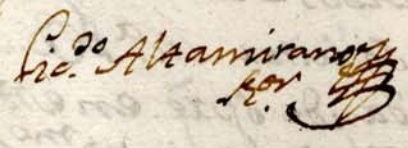 Licdo. Altamirano